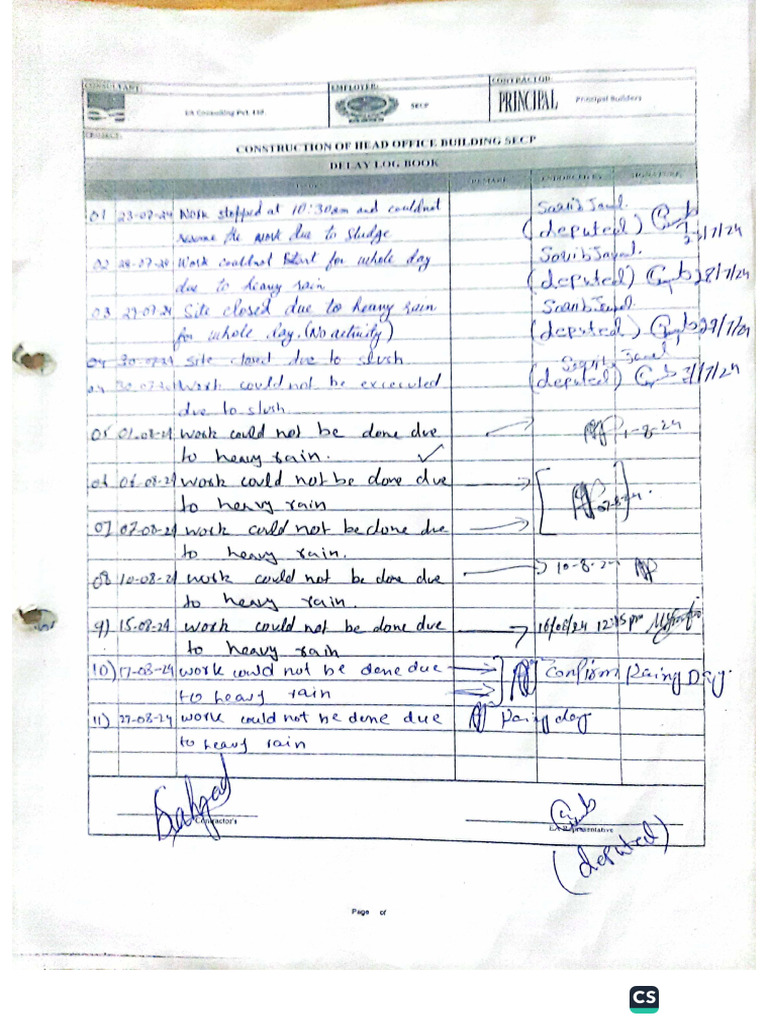 CONSULTANT:
EMPLOYER:
CONTRACTOR:
EA Consulting Pvt. Ltd.
SECP
PRINCIPAL Principal Builders
PROJECT:
CONSTRUCTION OF HEAD OFFICE BUILDING SECP
DELAY LOG BOOK
REMARK SIGNATURE
01 Work stopped at 10:30am and couldnot
resume the work due to sludge
(deputed) /7/24
02 Work couldnot start for whole day
due to heavy rain
(deputed) 28/7/24
03 29-07-24 Site closed due to heavy rain
for whole day. (No activity)
(deputed) 29/7/24
04 30-07-24 Site closed due to slush
04 30-07-24 Work could not be executed
due to slush
(deputed) /7/24
05 01-08-24 work could not be done due
to heavy rain.
1-8-24
06 06-08-24 work could not be done due
to heavy rain
07-8-24.
07 07-08-24 work could not be done due
to heavy rain.
08 10-08-24 work could not be done due
to heavy rain.
10-8-24
9) 15-08-24 work could not be done due
to heavy rain
16/08/24 12:15 pm
10) 17-08-24 work could not be done due
to heavy rain
Confirm Raing Day.
11) 27-08-24 work could not be done due
to heavy rain
Raing day
Shahzad
Contractor's
Representative
(deputed)
Page of
CS